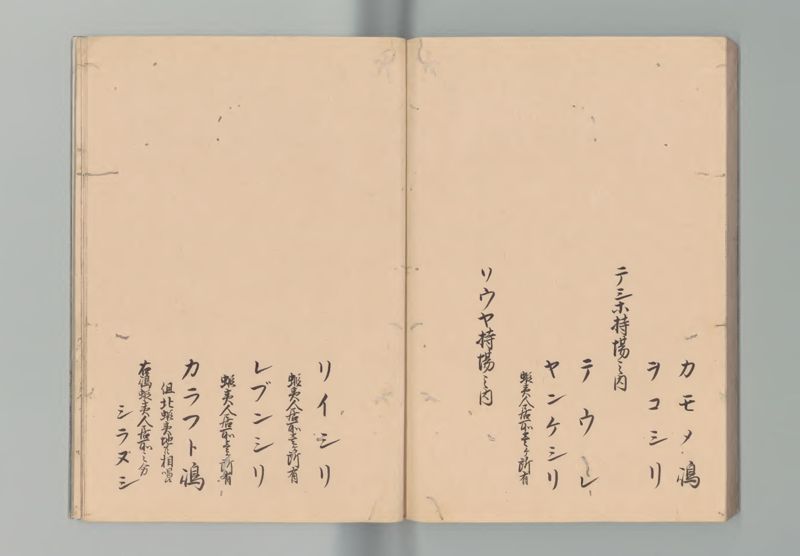 カモメ嶋
ヲコシリ
テシホ持場之内
テウレ
ヤンケシリ
蝦夷人居所壱ヶ所有
ソウヤ持場之内
リイシリ
蝦夷人居所壱ヶ所有
レブンシリ
蝦夷人居所壱ヶ所有
カラフト嶋
但北蝦夷地と相唱
右嶋蝦夷人居所之分
シラヌシ